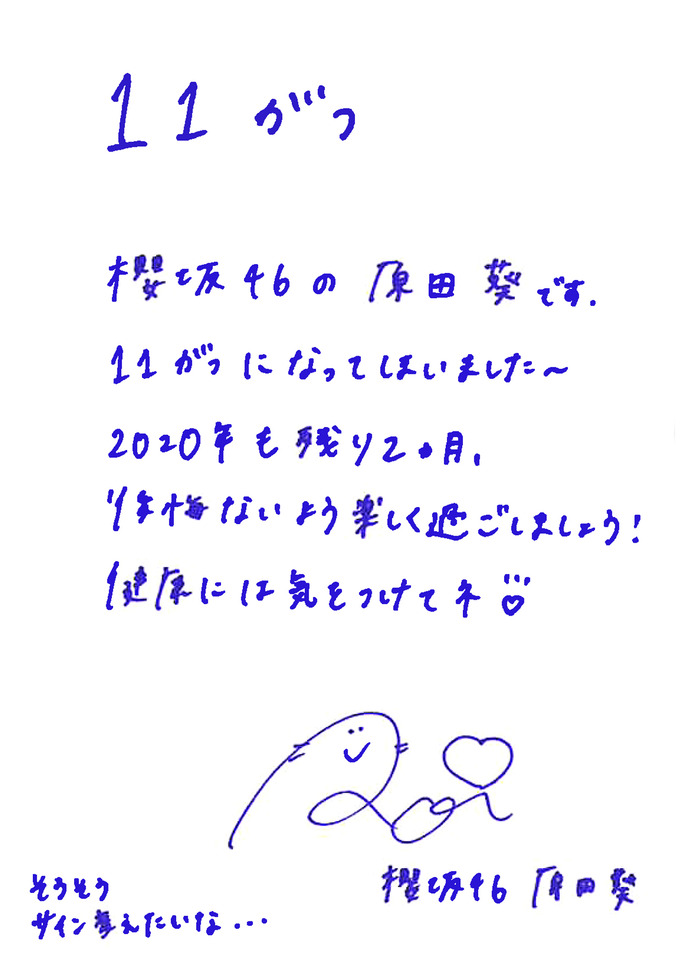 11がつ
櫻坂46の原田葵です.
11がつになってしまいました〜
2020年も残り2ヶ月,
後悔ないよう楽しく過ごしましょう!
健康には気をつけてネ
櫻坂46 原田葵
そうそう
サイン変えたいな...